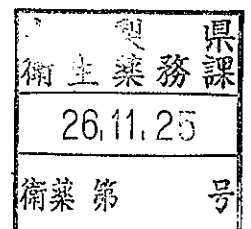 県
衛生薬務課
26.11.25
衛薬第 号